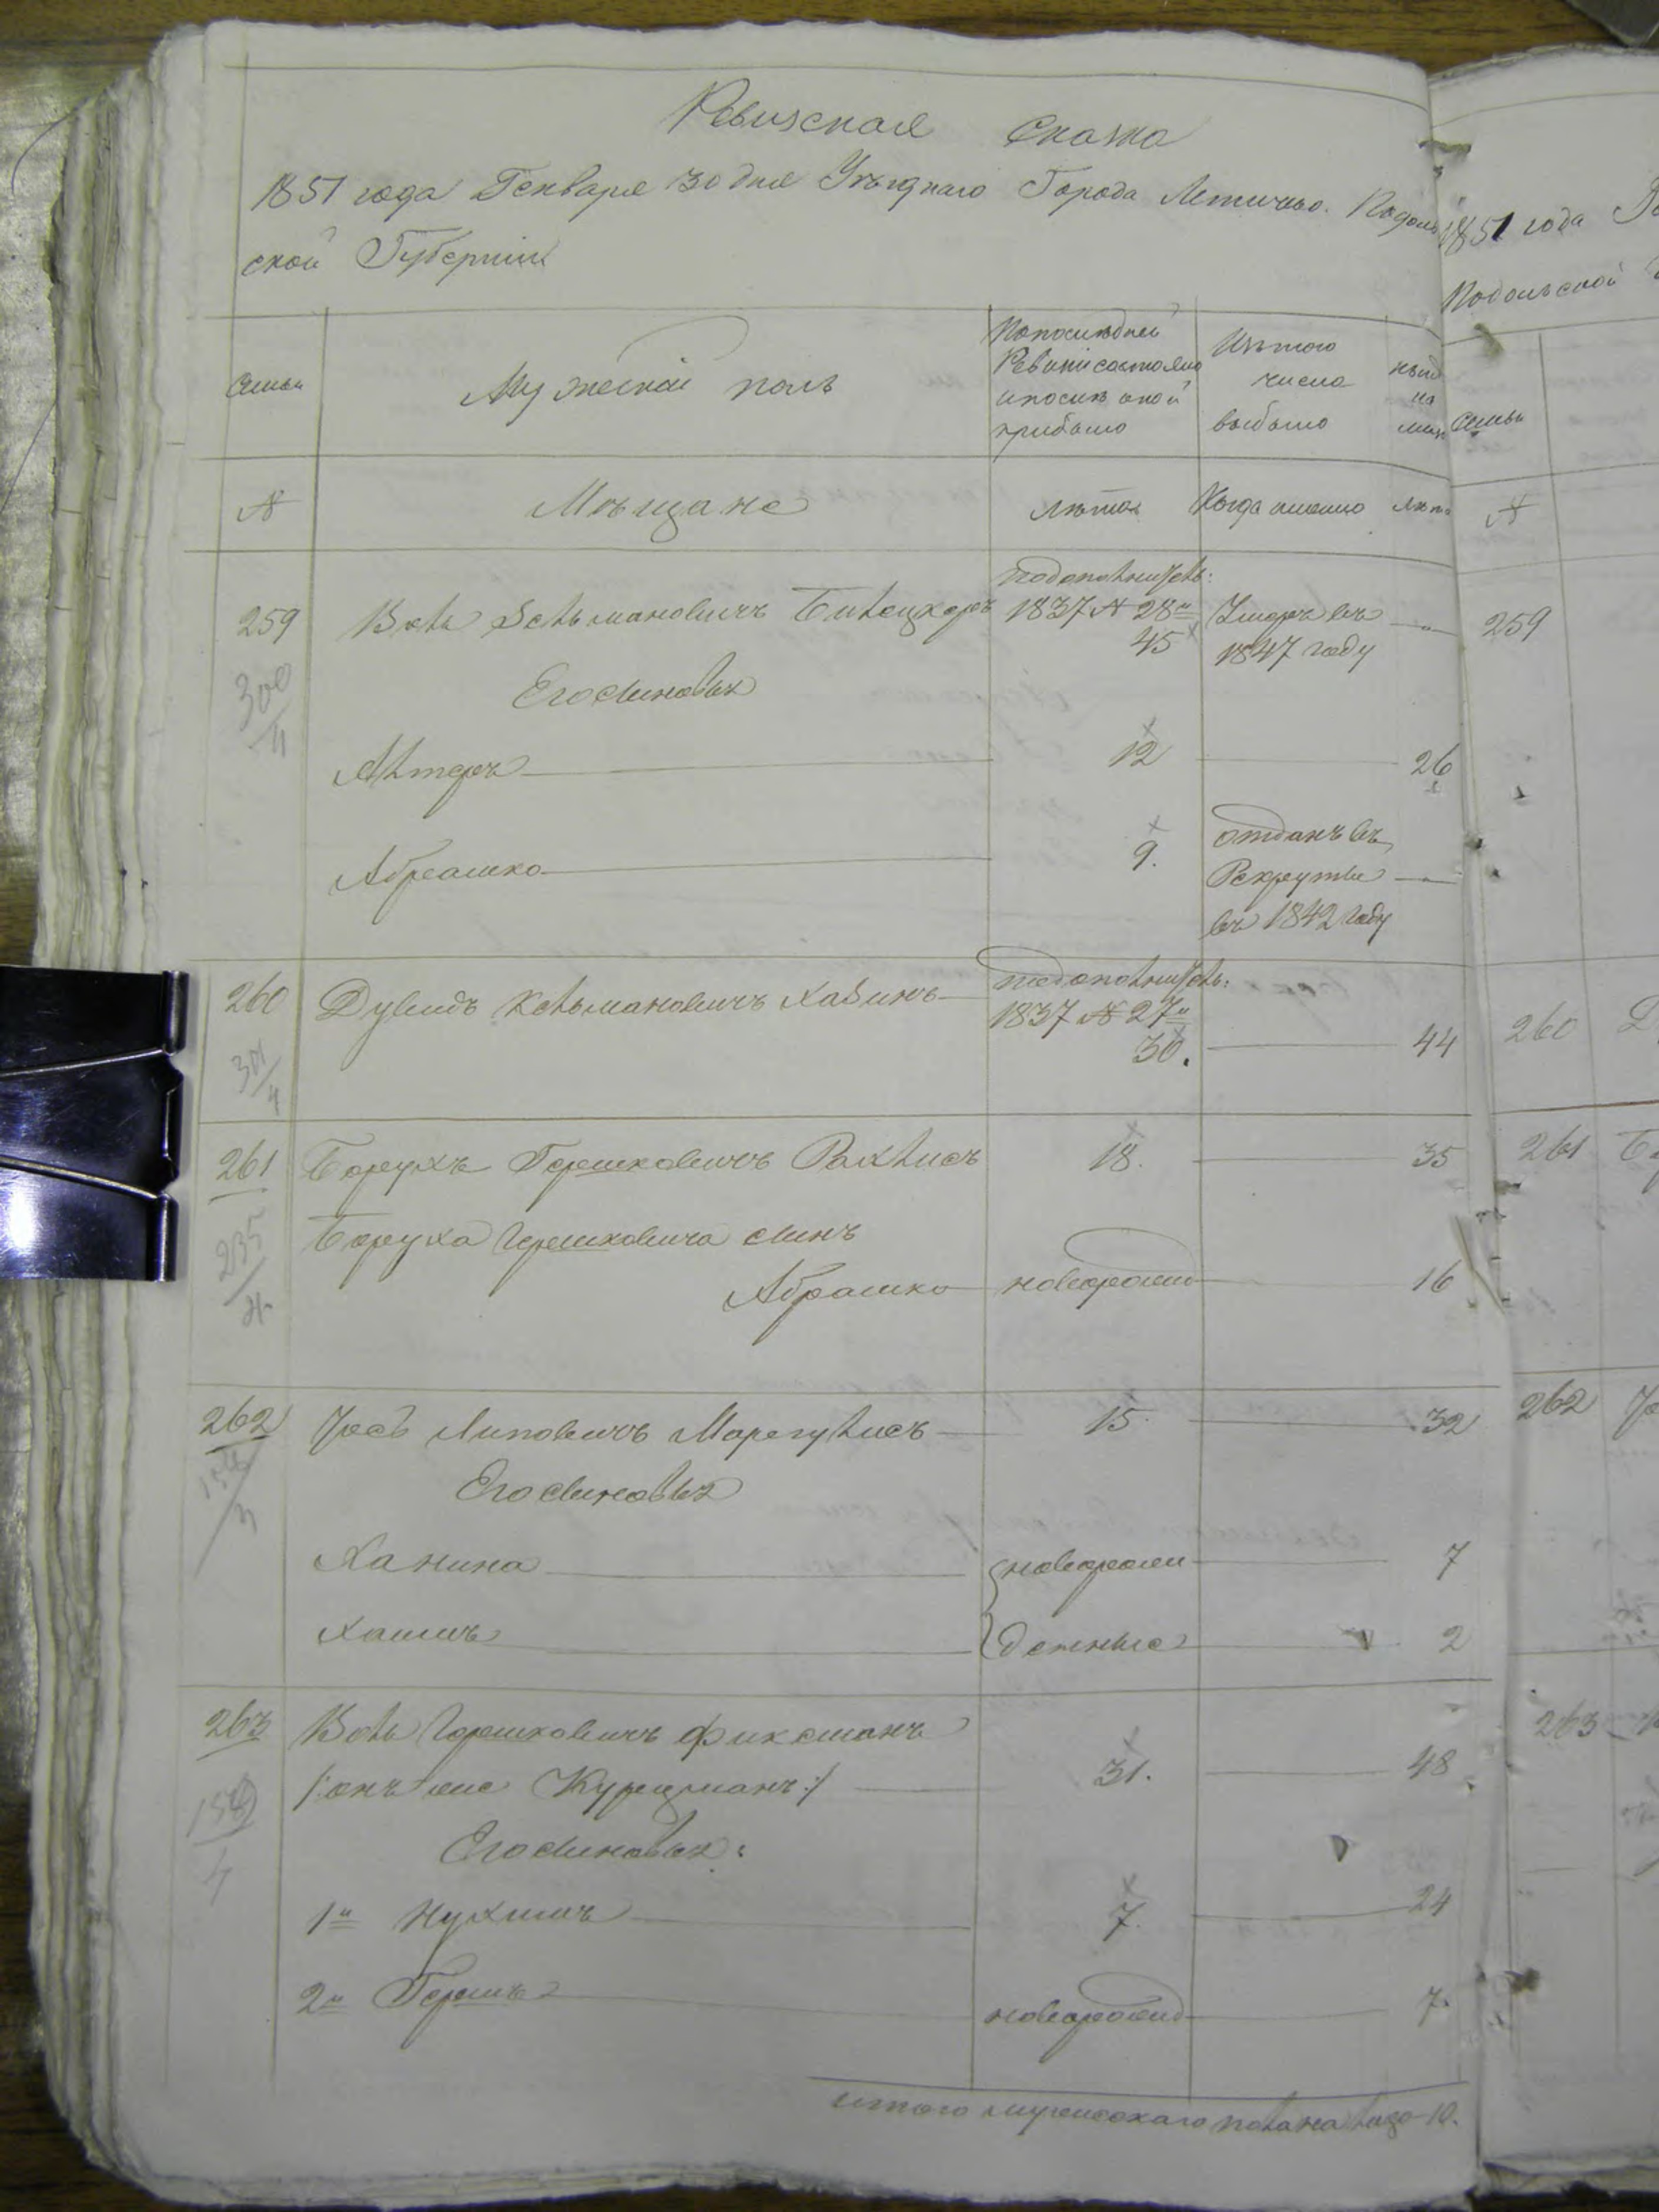 Ревизская Сказка
1851 года Генваря 30 дня Уѣзднаго Города Летичева. Подоль
ской Губерніи
семьи
Мужескій полъ
По последней
Ревизіи состояло
и после оной
прибыло
Изъ того
числа
выбыло
ныне
на
лицо
№
Мѣщане
лѣта
Когда именно
лѣта
259
Волъ Зельмановичъ
по дополнитель:
1837 № 28"
45
Умеръ въ
1847 году
300/4
Его сыновья
Альтеръ
12
26
Абрашко
9.
отданъ въ
Рекруты
въ 1842 году
260
Дувидъ Кельмановичъ Хазинъ
по дополнитель:
1837 № 27"
30.
44
301/4
261
Борухъ Гершковичъ Рахлисъ
18.
35
235/4
Боруха Гершковича сынъ
Абрашко
новорожд
16
262
Іось Липовичъ Маргулисъ
15
32
Его сыновья
Ханина
новорож
7
Хаимъ
денные
2
263
Волъ Гершковичъ Фиксманъ
/:онъ же Курцманъ:/
31.
48
Его сыновья:
1й Нухимъ
7.
24
2й Гершъ
новорожд
7.
итого мужескаго пола на лицо 10.
1851 года
Подольской
семьи
№
259
260
261
262
263